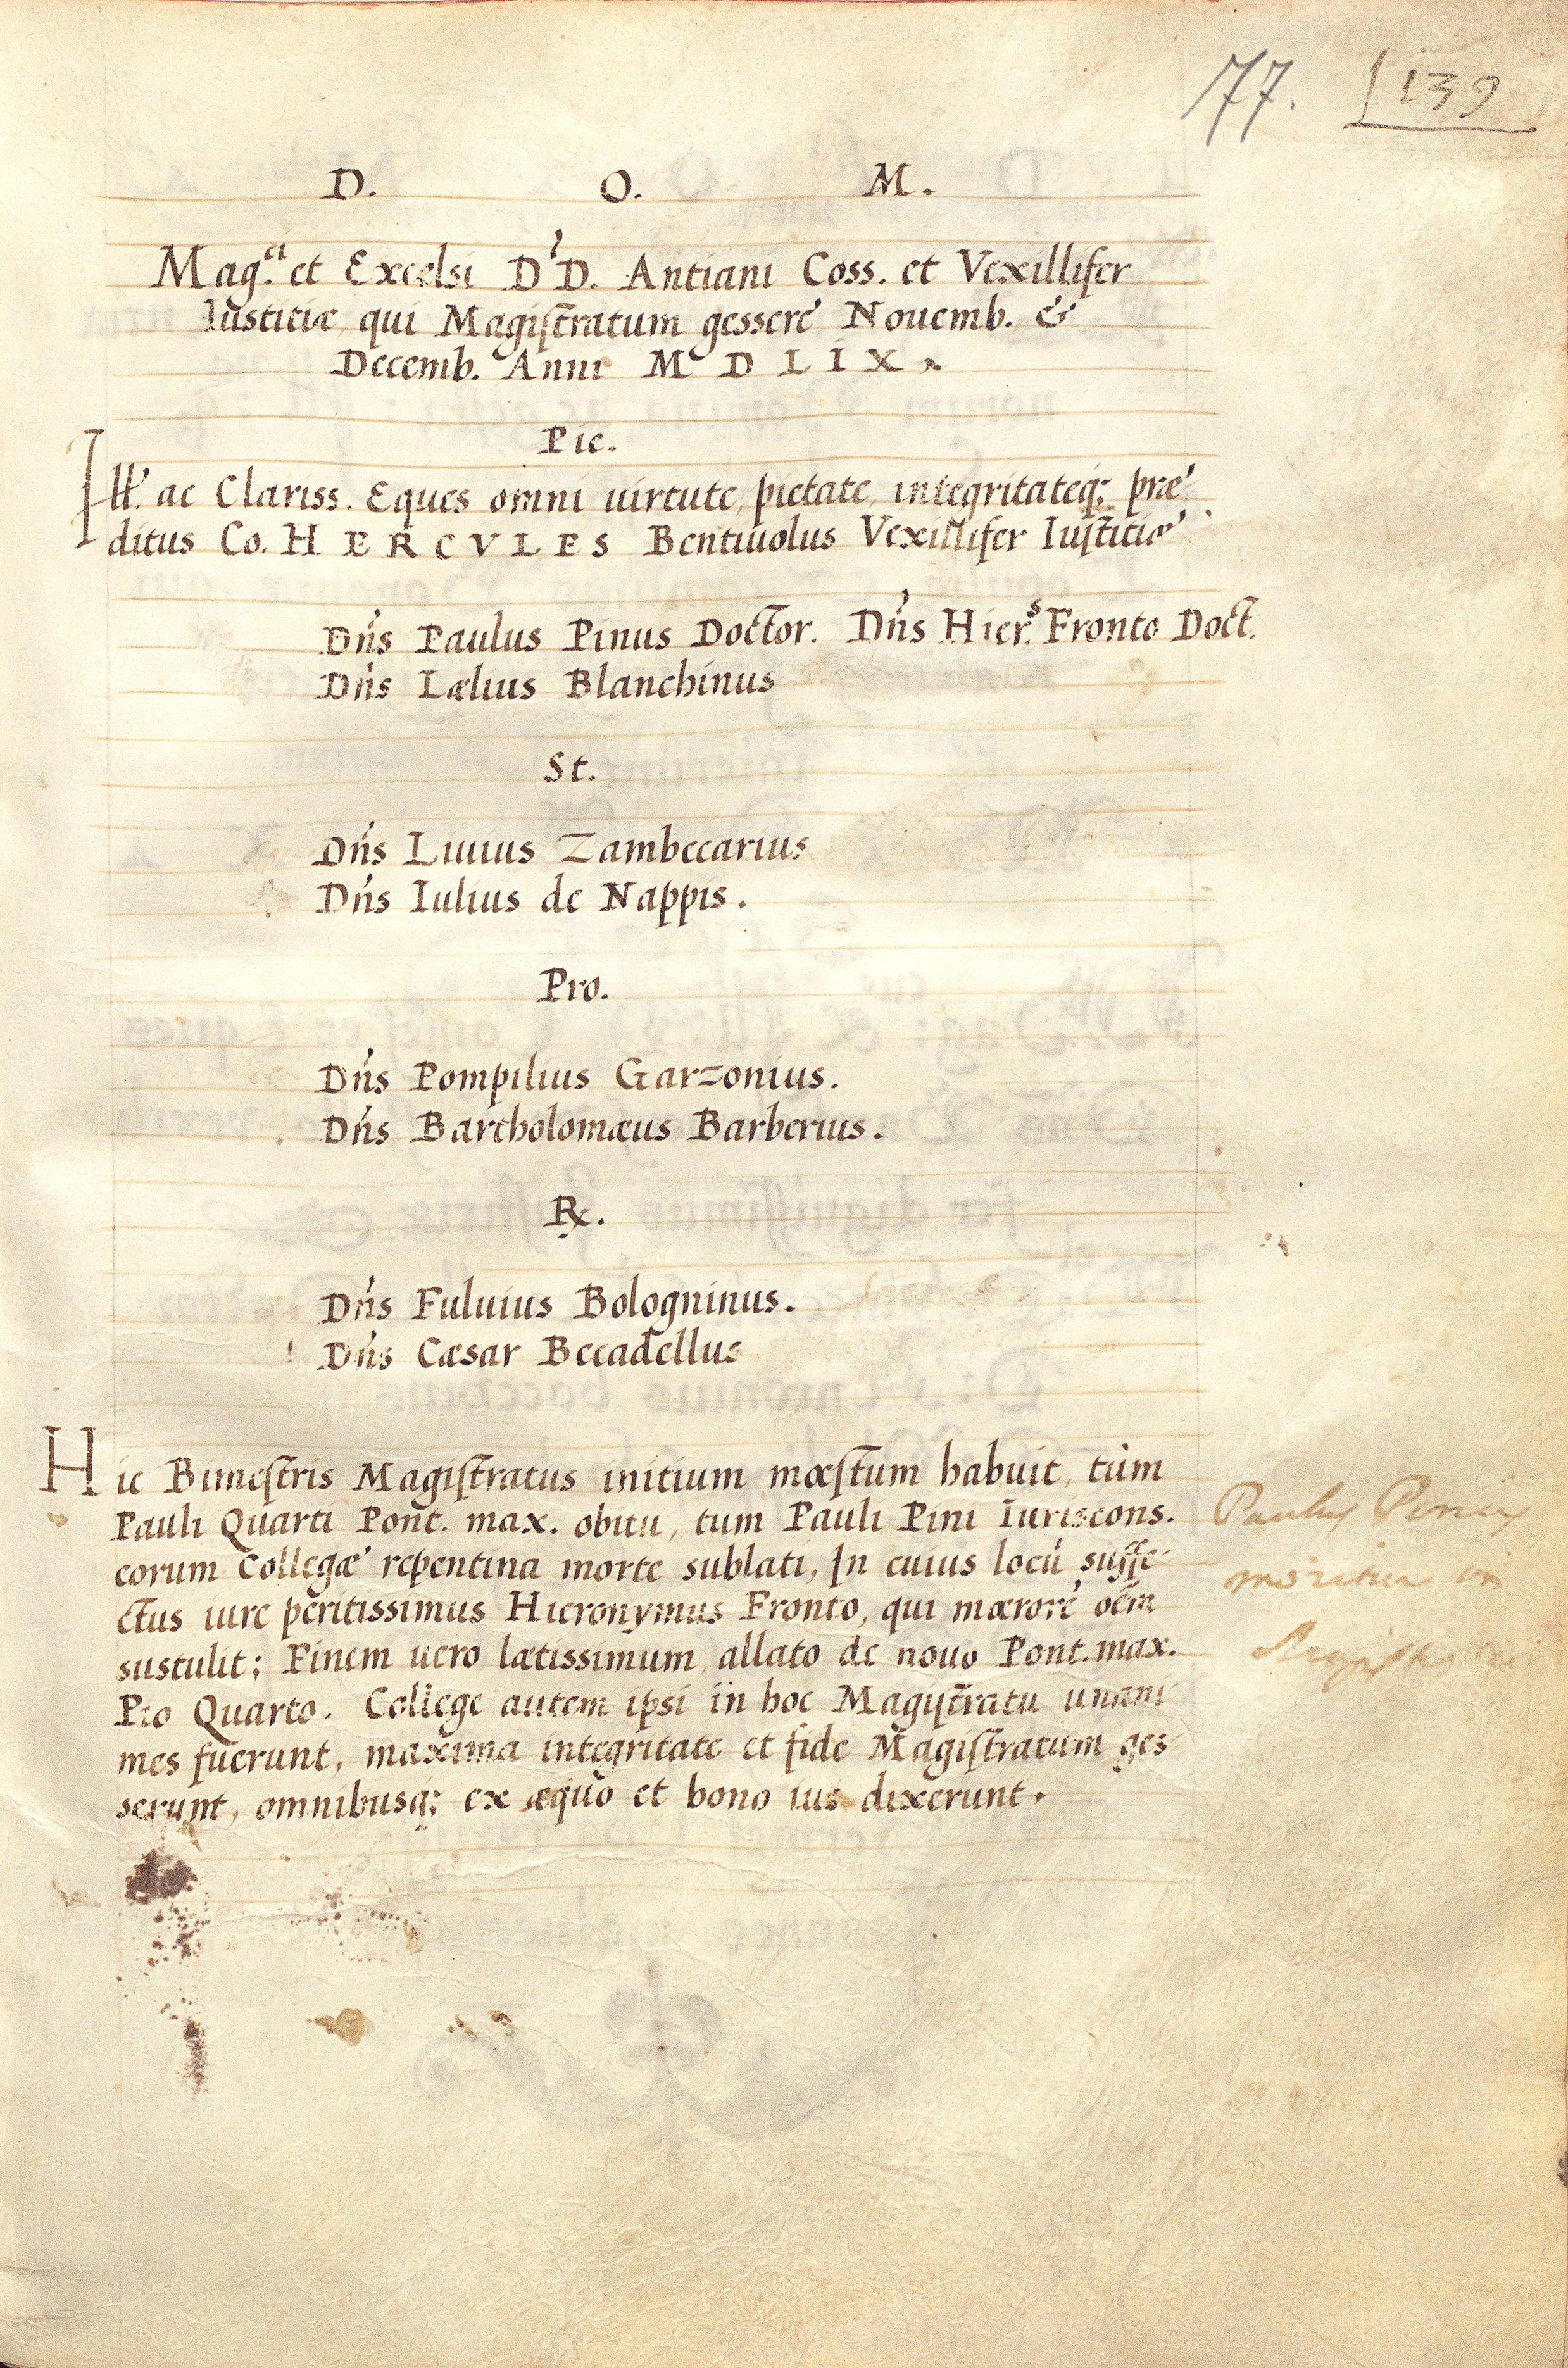 77. 139
D. O. M.
Mag.ci et Excelsi D'D. Antiani Coss. et Vexillifer
Iustitiæ, qui Magistratum gessere Nouemb. &
Decemb. Anni M D L I X.
Pie.
Ill'. ac Clariss. Eques omni uirtute, pietate, integritateq; præ
ditus Co. HERCVLES Bentiuolus Vexillifer Iustitiæ
Dn̄s Paulus Pinus Doctor. Dn̄s Hier.s Fronto Doct.
Dn̄s Lælius Blanchinus
St.
Dn̄s Liuius Zambecarius
Dn̄s Iulius de Nappis.
Pro.
Dn̄s Pompilius Garzonius.
Dn̄s Bartholomæus Barberius.
R.
Dn̄s Fuluius Bologninus.
Dn̄s Cæsar Beccadellus
Hic Bimestris Magistratus initium mœstum habuit, tùm
Pauli Quarti Pont. max. obitu, tum Pauli Pini Iuriscons.
eorum Collegæ repentina morte sublati, In cuius locū suffe
ctus iure peritissimus Hieronymus Fronto, qui mœrorē oēm
sustulit; Finem uero lætissimum, allato de nouo Pont. max.
Pio Quarto. Collegę autem ipsi in hoc Magistratu unani
mes fuerunt, maxima integritate et fide Magistratum ges
serunt, omnibusq; ex æquo et bono ius dixerunt.
Paulus Pinus
moritur in